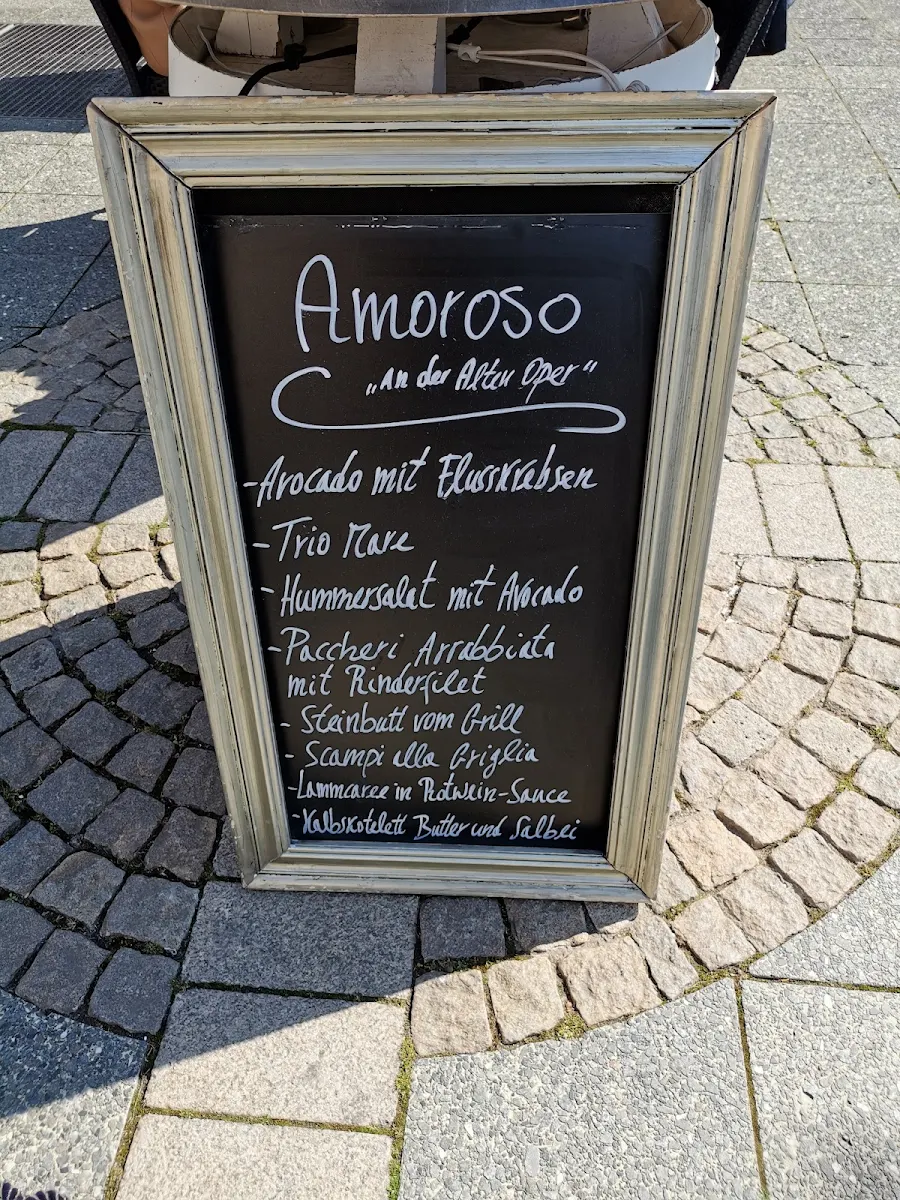 Amoroso
„An der Alten Oper"
-Avocado mit Flusskrebsen
-Trio Mare
-Hummersalat mit Avocado
-Paccheri Arrabbiata
mit Rinderfilet
- Steinbutt vom Grill
- Scampi alla Griglia
-Lammcaree in Rotwein-Sauce
-Kalbskotelett Butter und Salbei